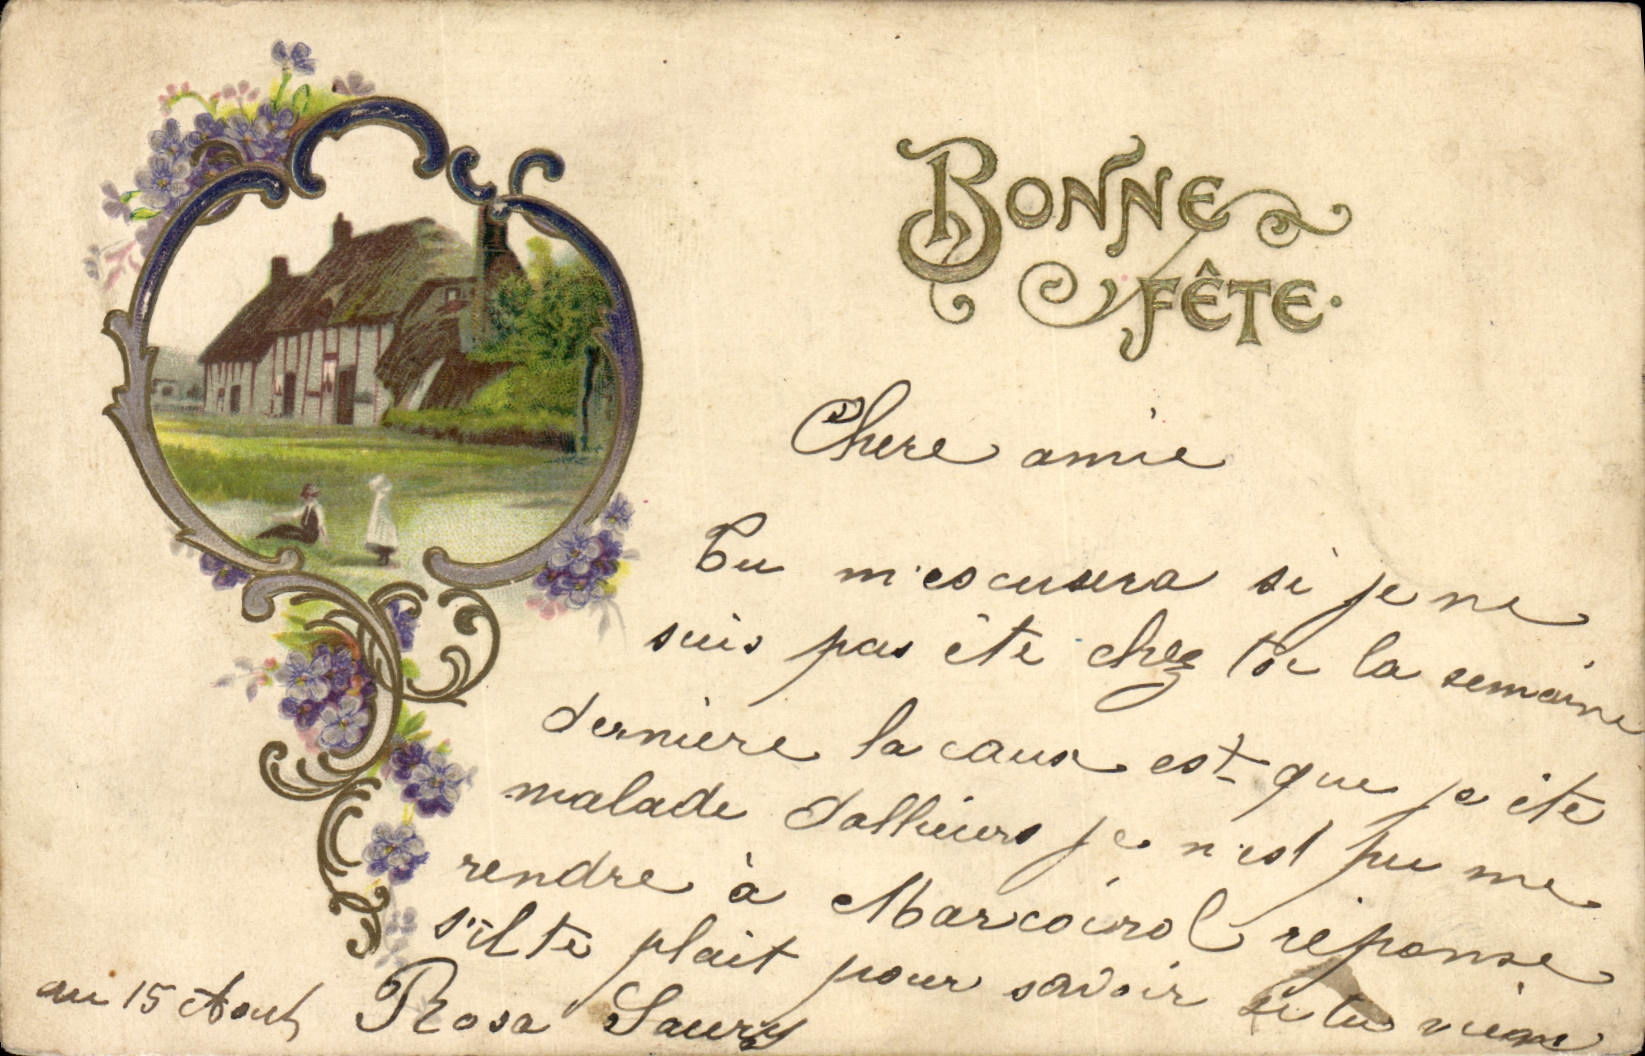 BONNE
FÊTE.
Chere amie
Tu m'escusera si je ne
suis pas éte chez toi la semaine
derniere la caus est que je éte
malade dallieurs je n'est pu me
rendre à Marcoirol réponse
s'il te plait pour savoir si tu viens
au 15 Aout Rosa Saury